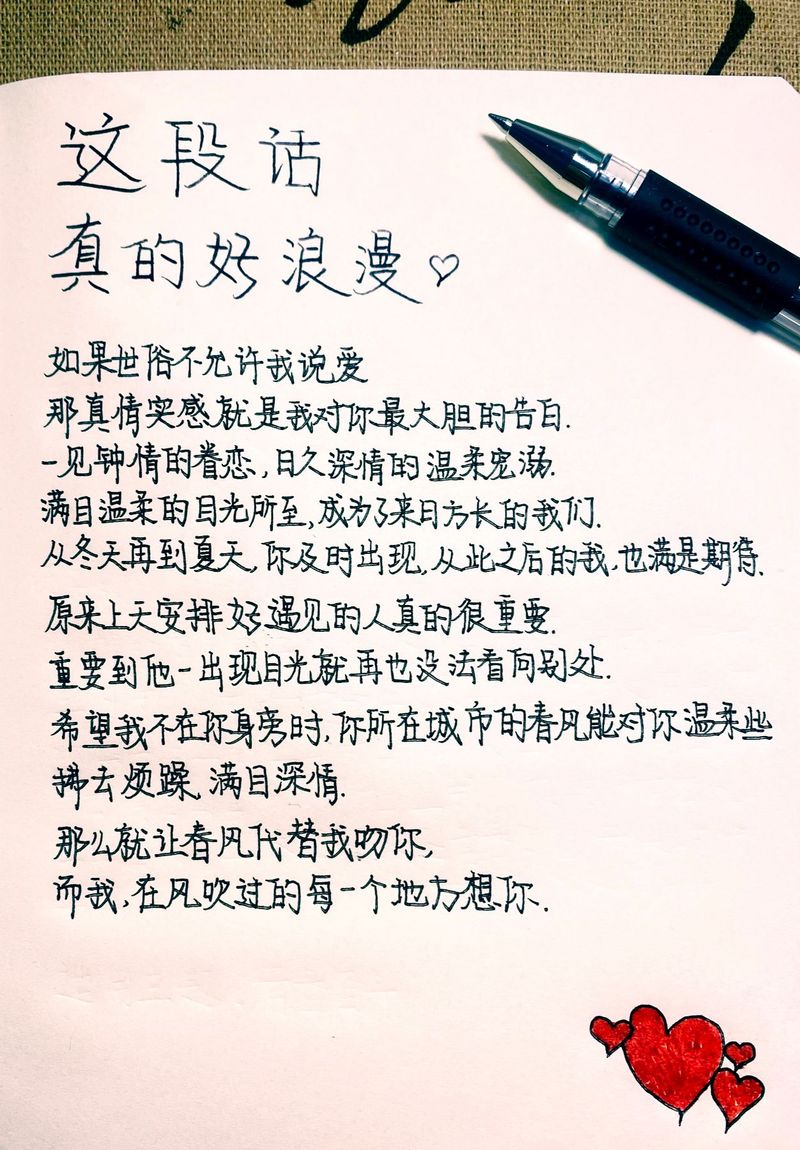 这段话
真的好浪漫♡
如果世俗不允许我说爱
那真情实感就是我对你最大胆的告白.
一见钟情的眷恋,日久深情的温柔宠溺.
满目温柔的目光所至,成为了来日方长的我们.
从冬天再到夏天,你及时出现,从此之后的我,也满是期待.
原来上天安排好遇见的人真的很重要.
重要到他一出现目光就再也没法看向别处.
希望我不在你身旁时,你所在城市的春风能对你温柔些
拂去烦躁,满目深情.
那么就让春风代替我吻你,
而我,在风吹过的每一个地方想你.